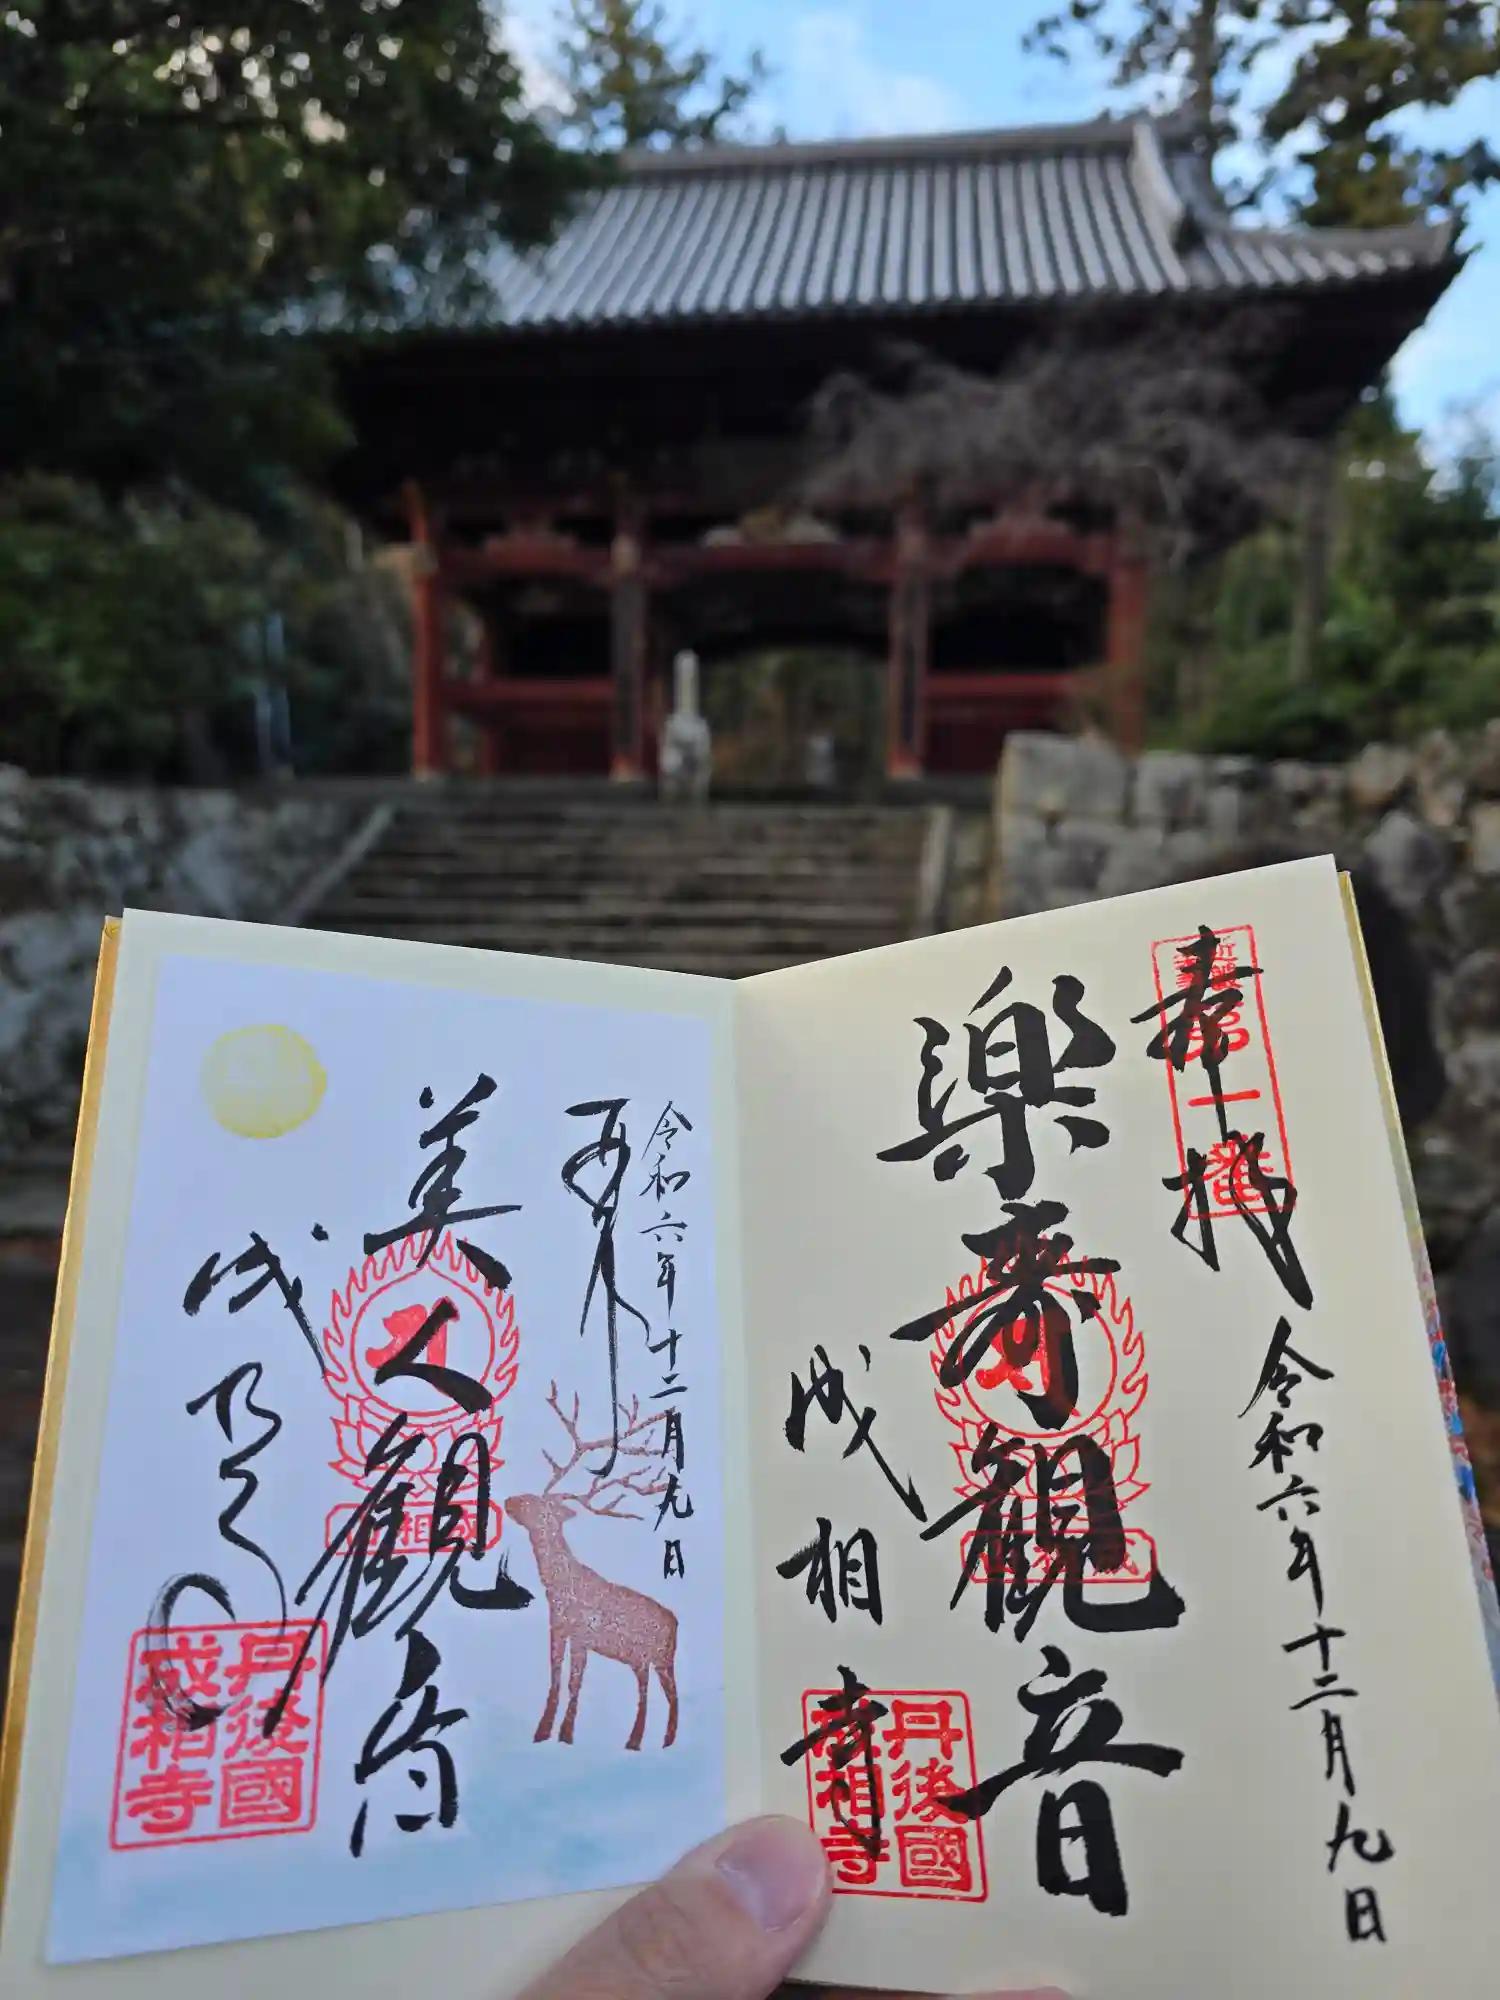 奉拝
近畿
第一番
令和六年十二月九日
楽寿観音
成相寺
丹後國
成相寺
令和六年十二月九日
奉拝
美人観音
成相寺
丹後國
成相寺